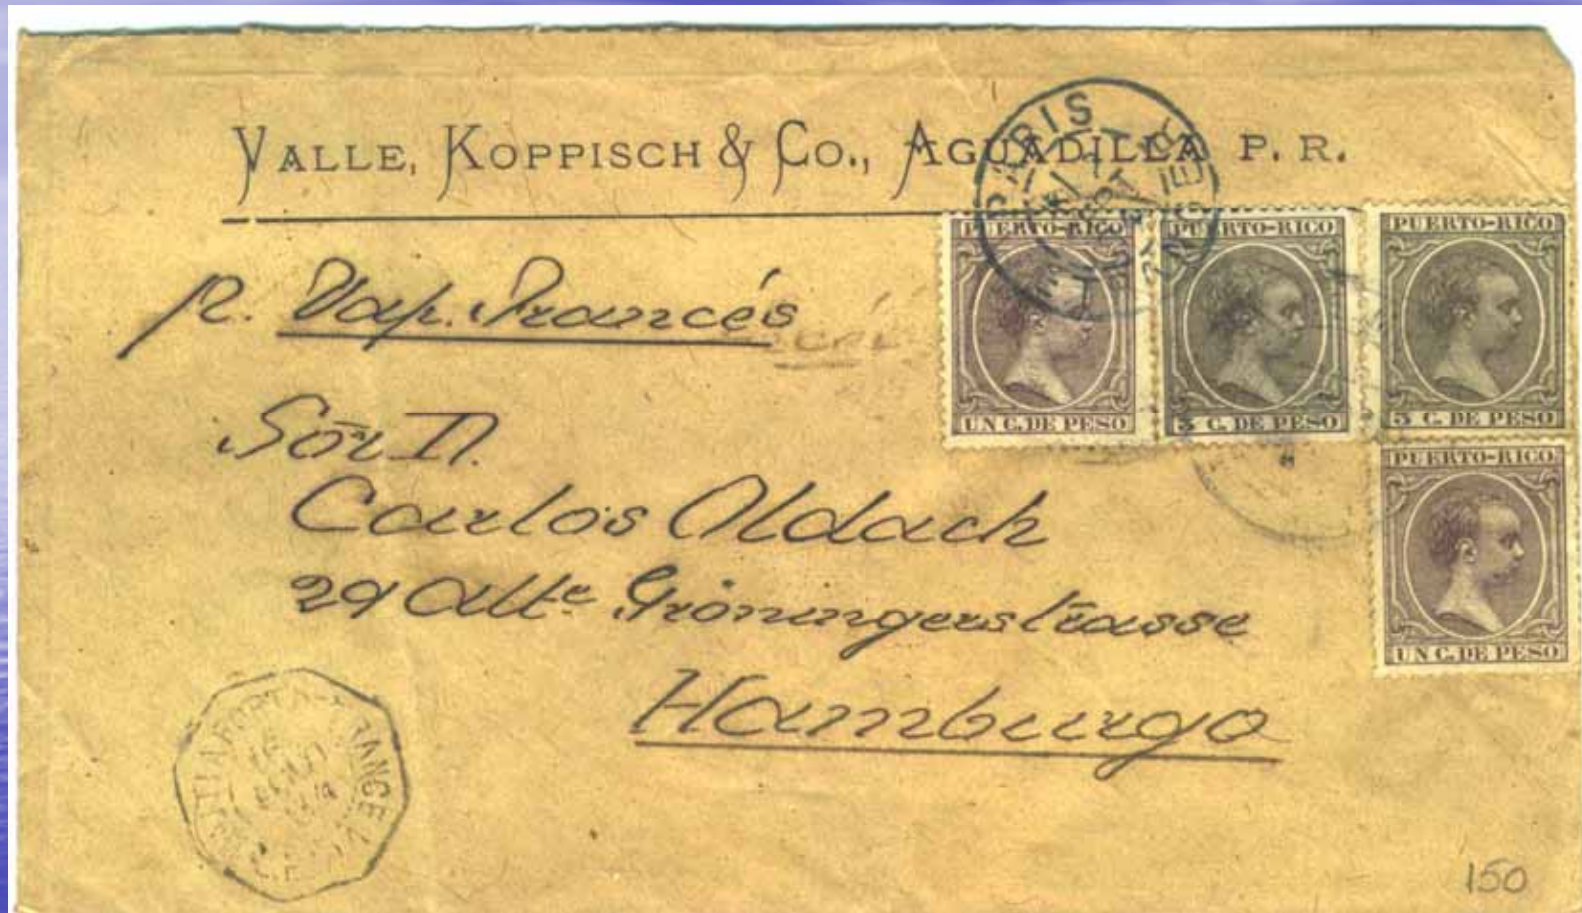 VALLE, KOPPISCH & CO., AGUADILLA P. R.
PARIS ETRANGER
PUERTO-RICO
UN C. DE PESO
PUERTO-RICO
3 C. DE PESO
PUERTO-RICO
3 C. DE PESO
PUERTO-RICO
UN C. DE PESO
p. Vap. Francés
Sór D.
Carlos Oldach
29 Alte Gröningerstrasse
Hamburgo
150